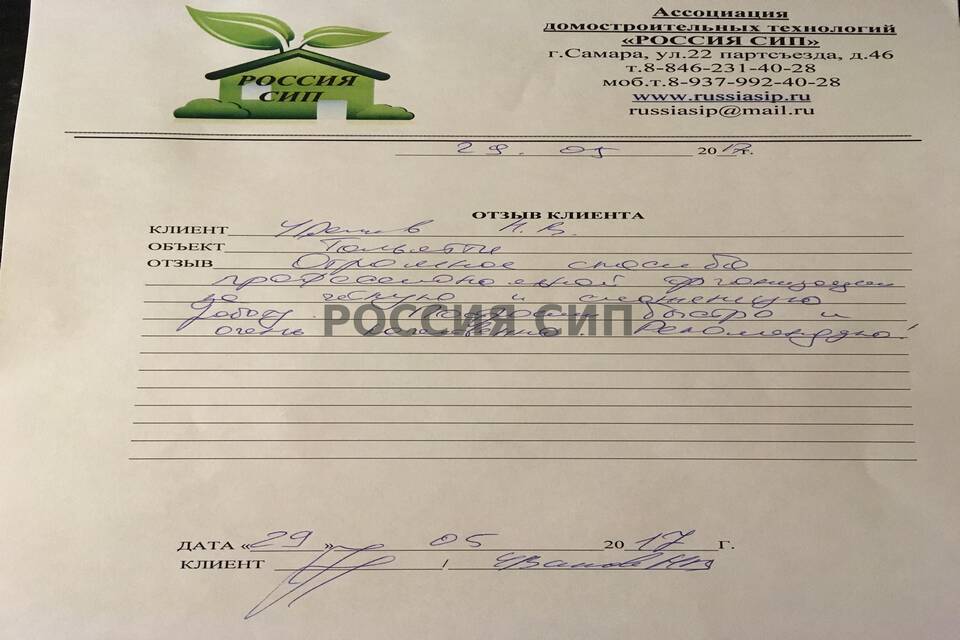 РОССИЯ
СИП
Ассоциация
домостроительных технологий
«РОССИЯ СИП»
г.Самара, ул.22 партсъезда, д.46
т.8-846-231-40-28
моб.т.8-937-992-40-28
www.russiasip.ru
russiasip@mail.ru
29. 05 2017г.
ОТЗЫВ КЛИЕНТА
КЛИЕНТ Н. В.
ОБЪЕКТ Тольятти
ОТЗЫВ Огромное спасибо
профессиональной организации
за и слаженную
работу. быстро и
очень качественно. Рекомендую!
РОССИЯ СИП
ДАТА «29» 05 2017 г.
КЛИЕНТ /